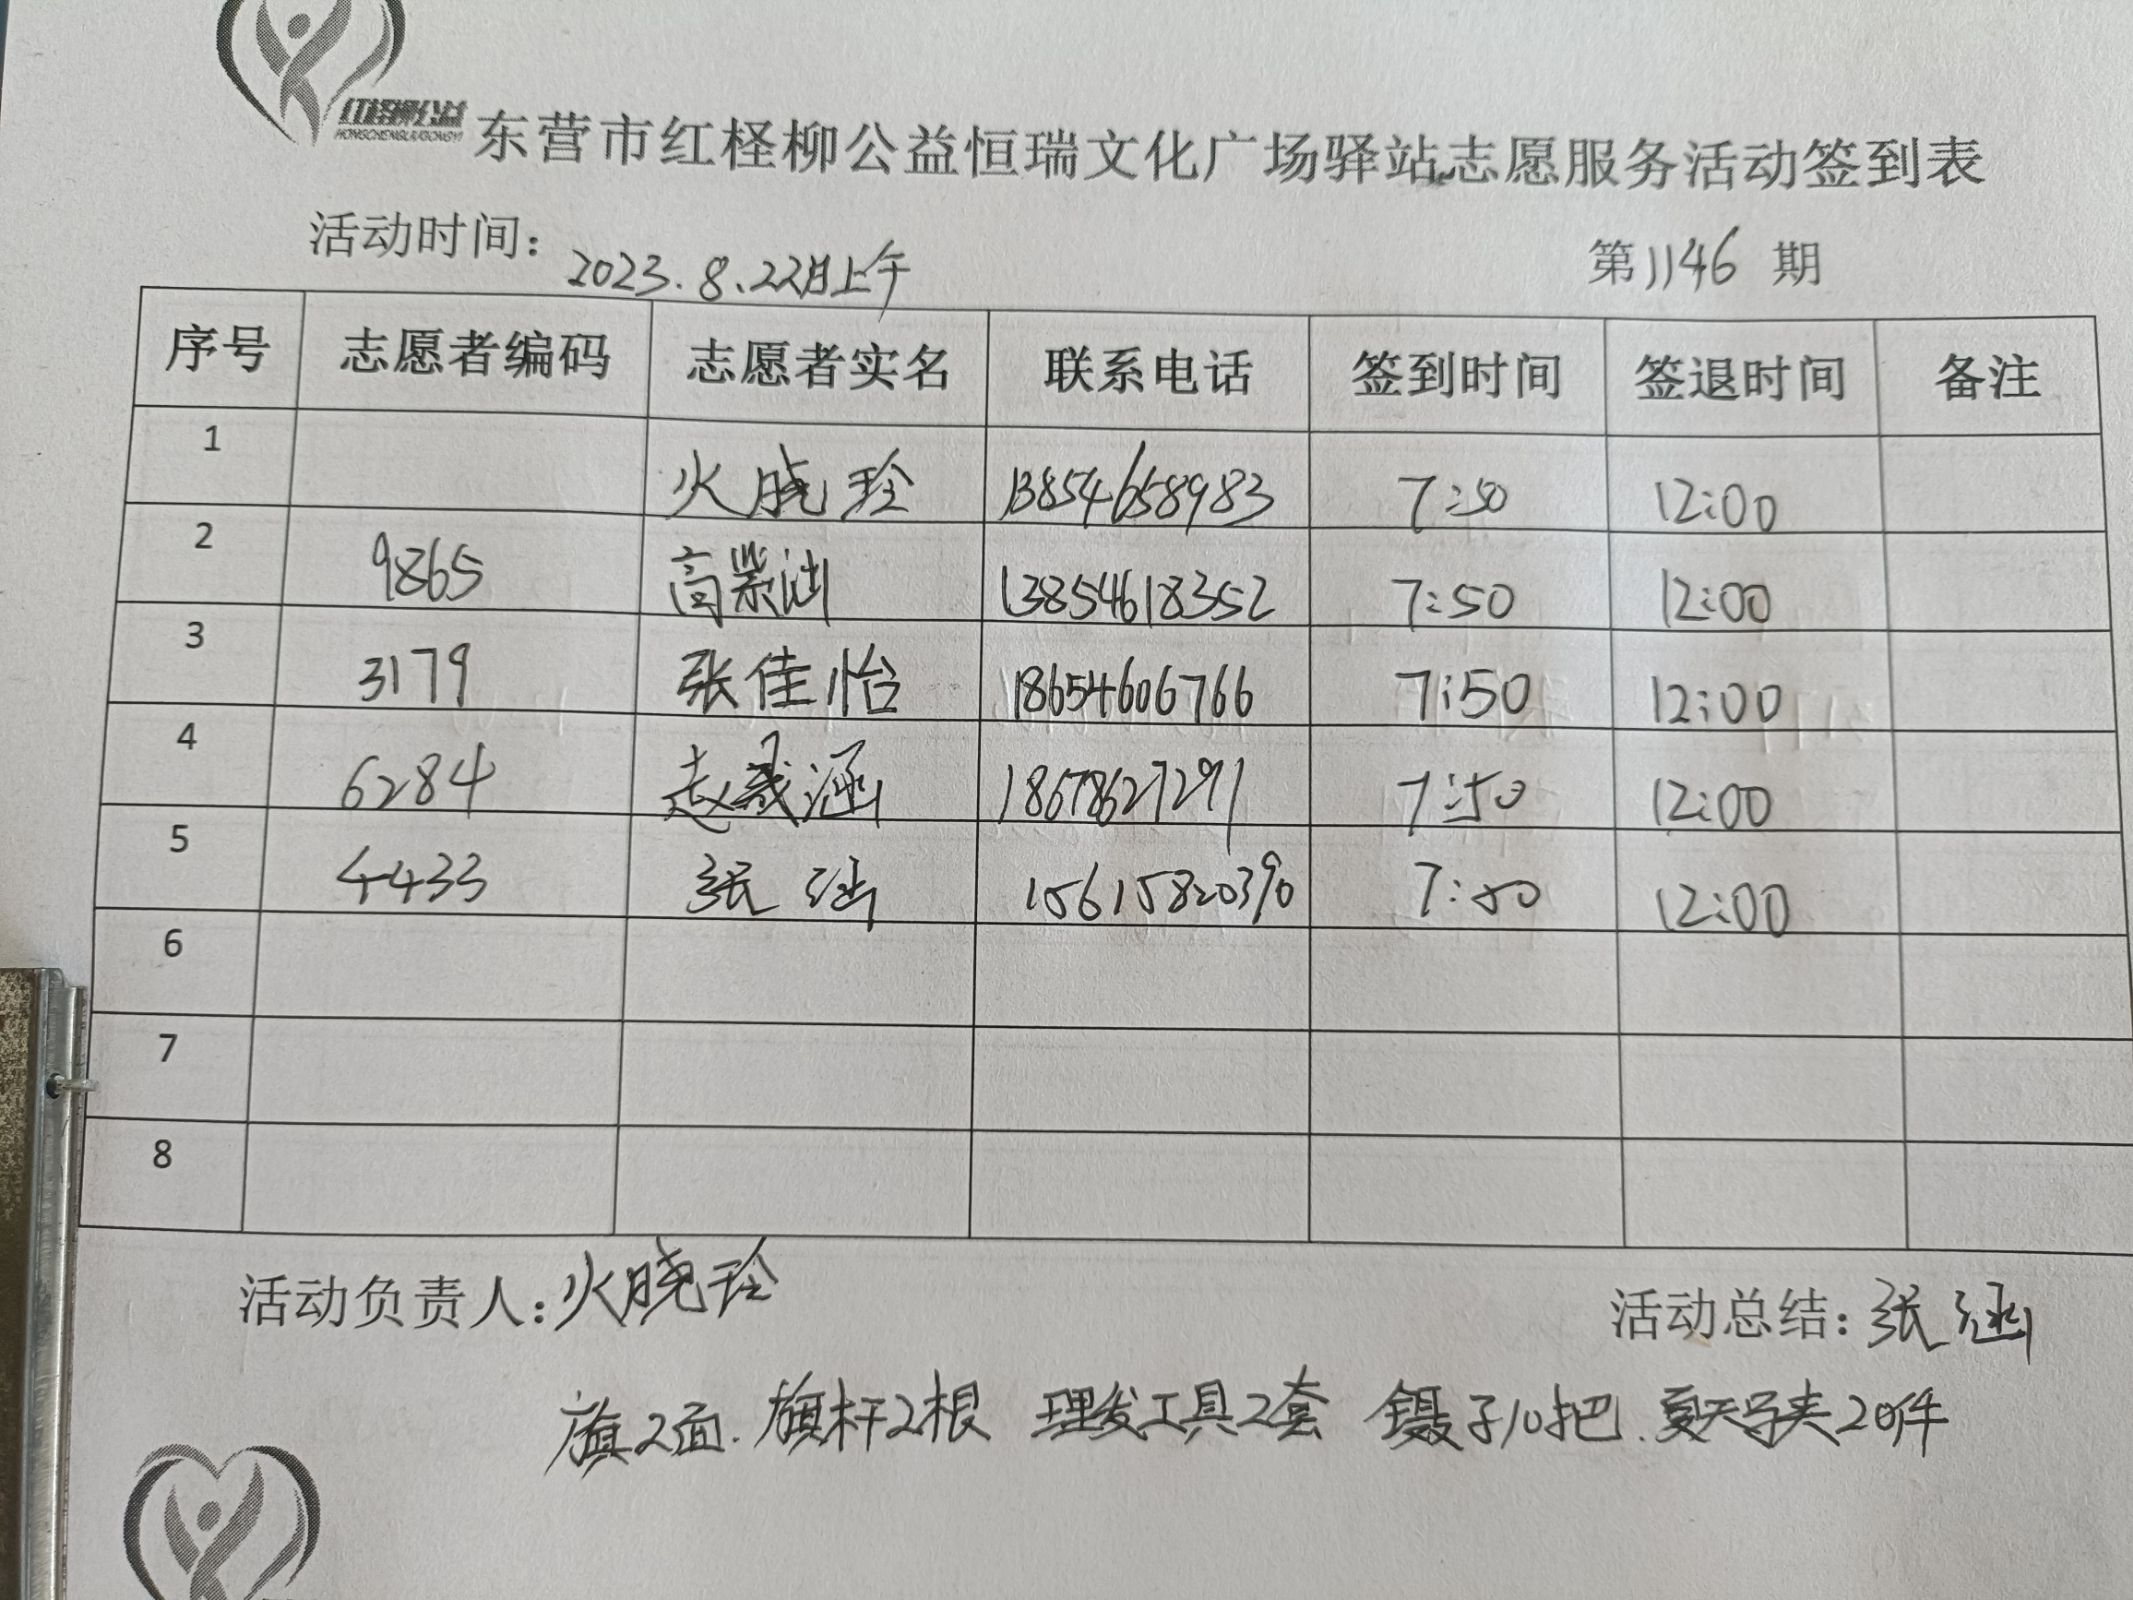 红柽柳公益
HONGCHENGLIUGONGYI
东营市红柽柳公益恒瑞文化广场驿站志愿服务活动签到表
活动时间：2023.8.22日上午 第1146期
序号 志愿者编码 志愿者实名 联系电话 签到时间 签退时间 备注
1 火晓玲 13854658983 7:50 12:00
2 9865 高紫涵 13854618352 7:50 12:00
3 3179 张佳怡 18654606766 7:50 12:00
4 6284 赵晟涵 18678627291 7:50 12:00
5 4433 张涵 15615820390 7:50 12:00
6
7
8
活动负责人：火晓玲 活动总结：张涵
旗2面.旗杆2根 理发工具2套 镊子10把.夏天马夹20件